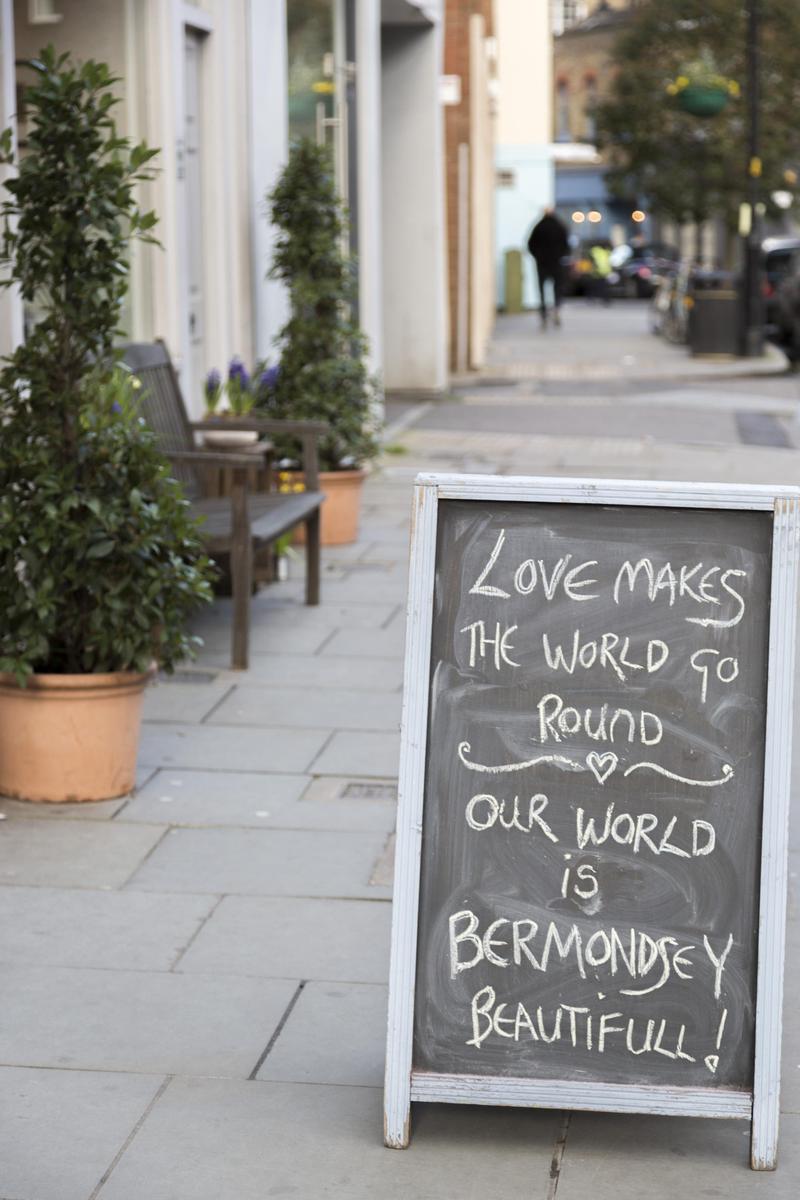 LOVE MAKES
THE WORLD GO
ROUND
OUR WORLD
is
BERMONDSEY
BEAUTIFULL!